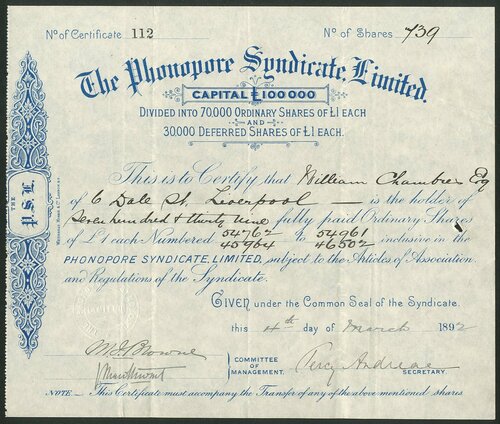 No of Certificate 112 No of Shares 739
The Phonopore Syndicate, Limited.
CAPITAL £100000
DIVIDED INTO 70,000 ORDINARY SHARES OF £1 EACH
AND
30,000 DEFERRED SHARES OF £1 EACH.
This is to Certify that William Chambers Esq
of 6 Dale St. Liverpool — is the holder of
Seven hundred & thirty nine fully paid Ordinary Shares
of £1 each Numbered 54762 to 54961
45964 46502 inclusive in the
PHONOPORE SYNDICATE, LIMITED, subject to the Articles of Association
and Regulations of the Syndicate.
GIVEN under the Common Seal of the Syndicate.
this 4th day of March 1892
M.J. Browne
COMMITTEE OF MANAGEMENT.
Percy Andreae
SECRETARY.
NOTE.— This Certificate must accompany the Transfer of any of the above mentioned shares
THE
P.S.L.